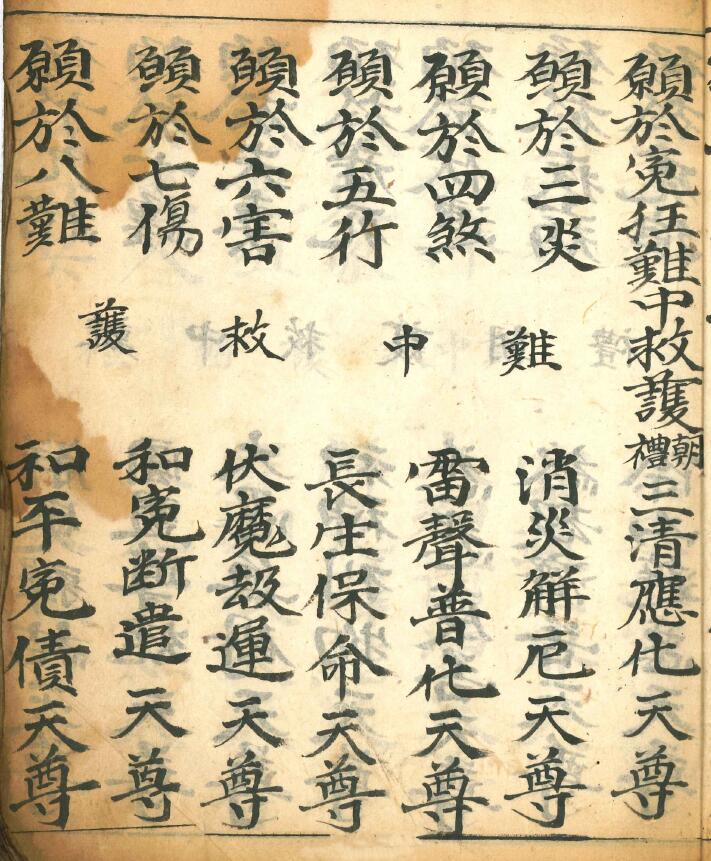 願於寃狂難中救護朝禮三清應化天尊
願於三災
願於四煞
願於五行
願於六害
願於七傷
願於八難
難中救護
消災解厄天尊
雷聲普化天尊
長生保命天尊
伏魔劫運天尊
和寃断遣天尊
和平寃債天尊